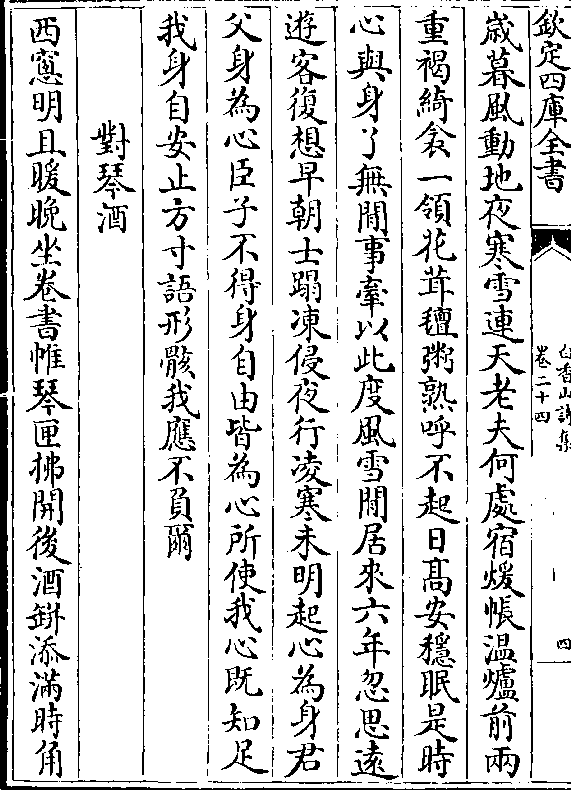 欽定四庫全書
白香山詩集
卷二十四
四
歳暮風動地夜寒雪連天老夫何處宿煖帳温爐前兩
重褐綺衾一領花茸氊粥熟呼不起日髙安穩眠是時
心與身了無閒事牽以此度風雪閒居來六年忽思遠
遊客復想早朝士蹋凍侵夜行凌寒未明起心為身君
父身為心臣子不得身自由皆為心所使我心既知足
我身自安止方寸語形骸我應不負爾
對琴酒
西窻明且暖晚坐卷書帷琴匣拂開後酒缾添滿時角